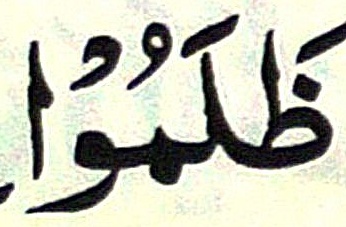 ظَلَمُوْا